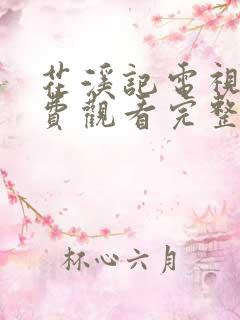 茌溪記電視
費觀看完整
杯心六月